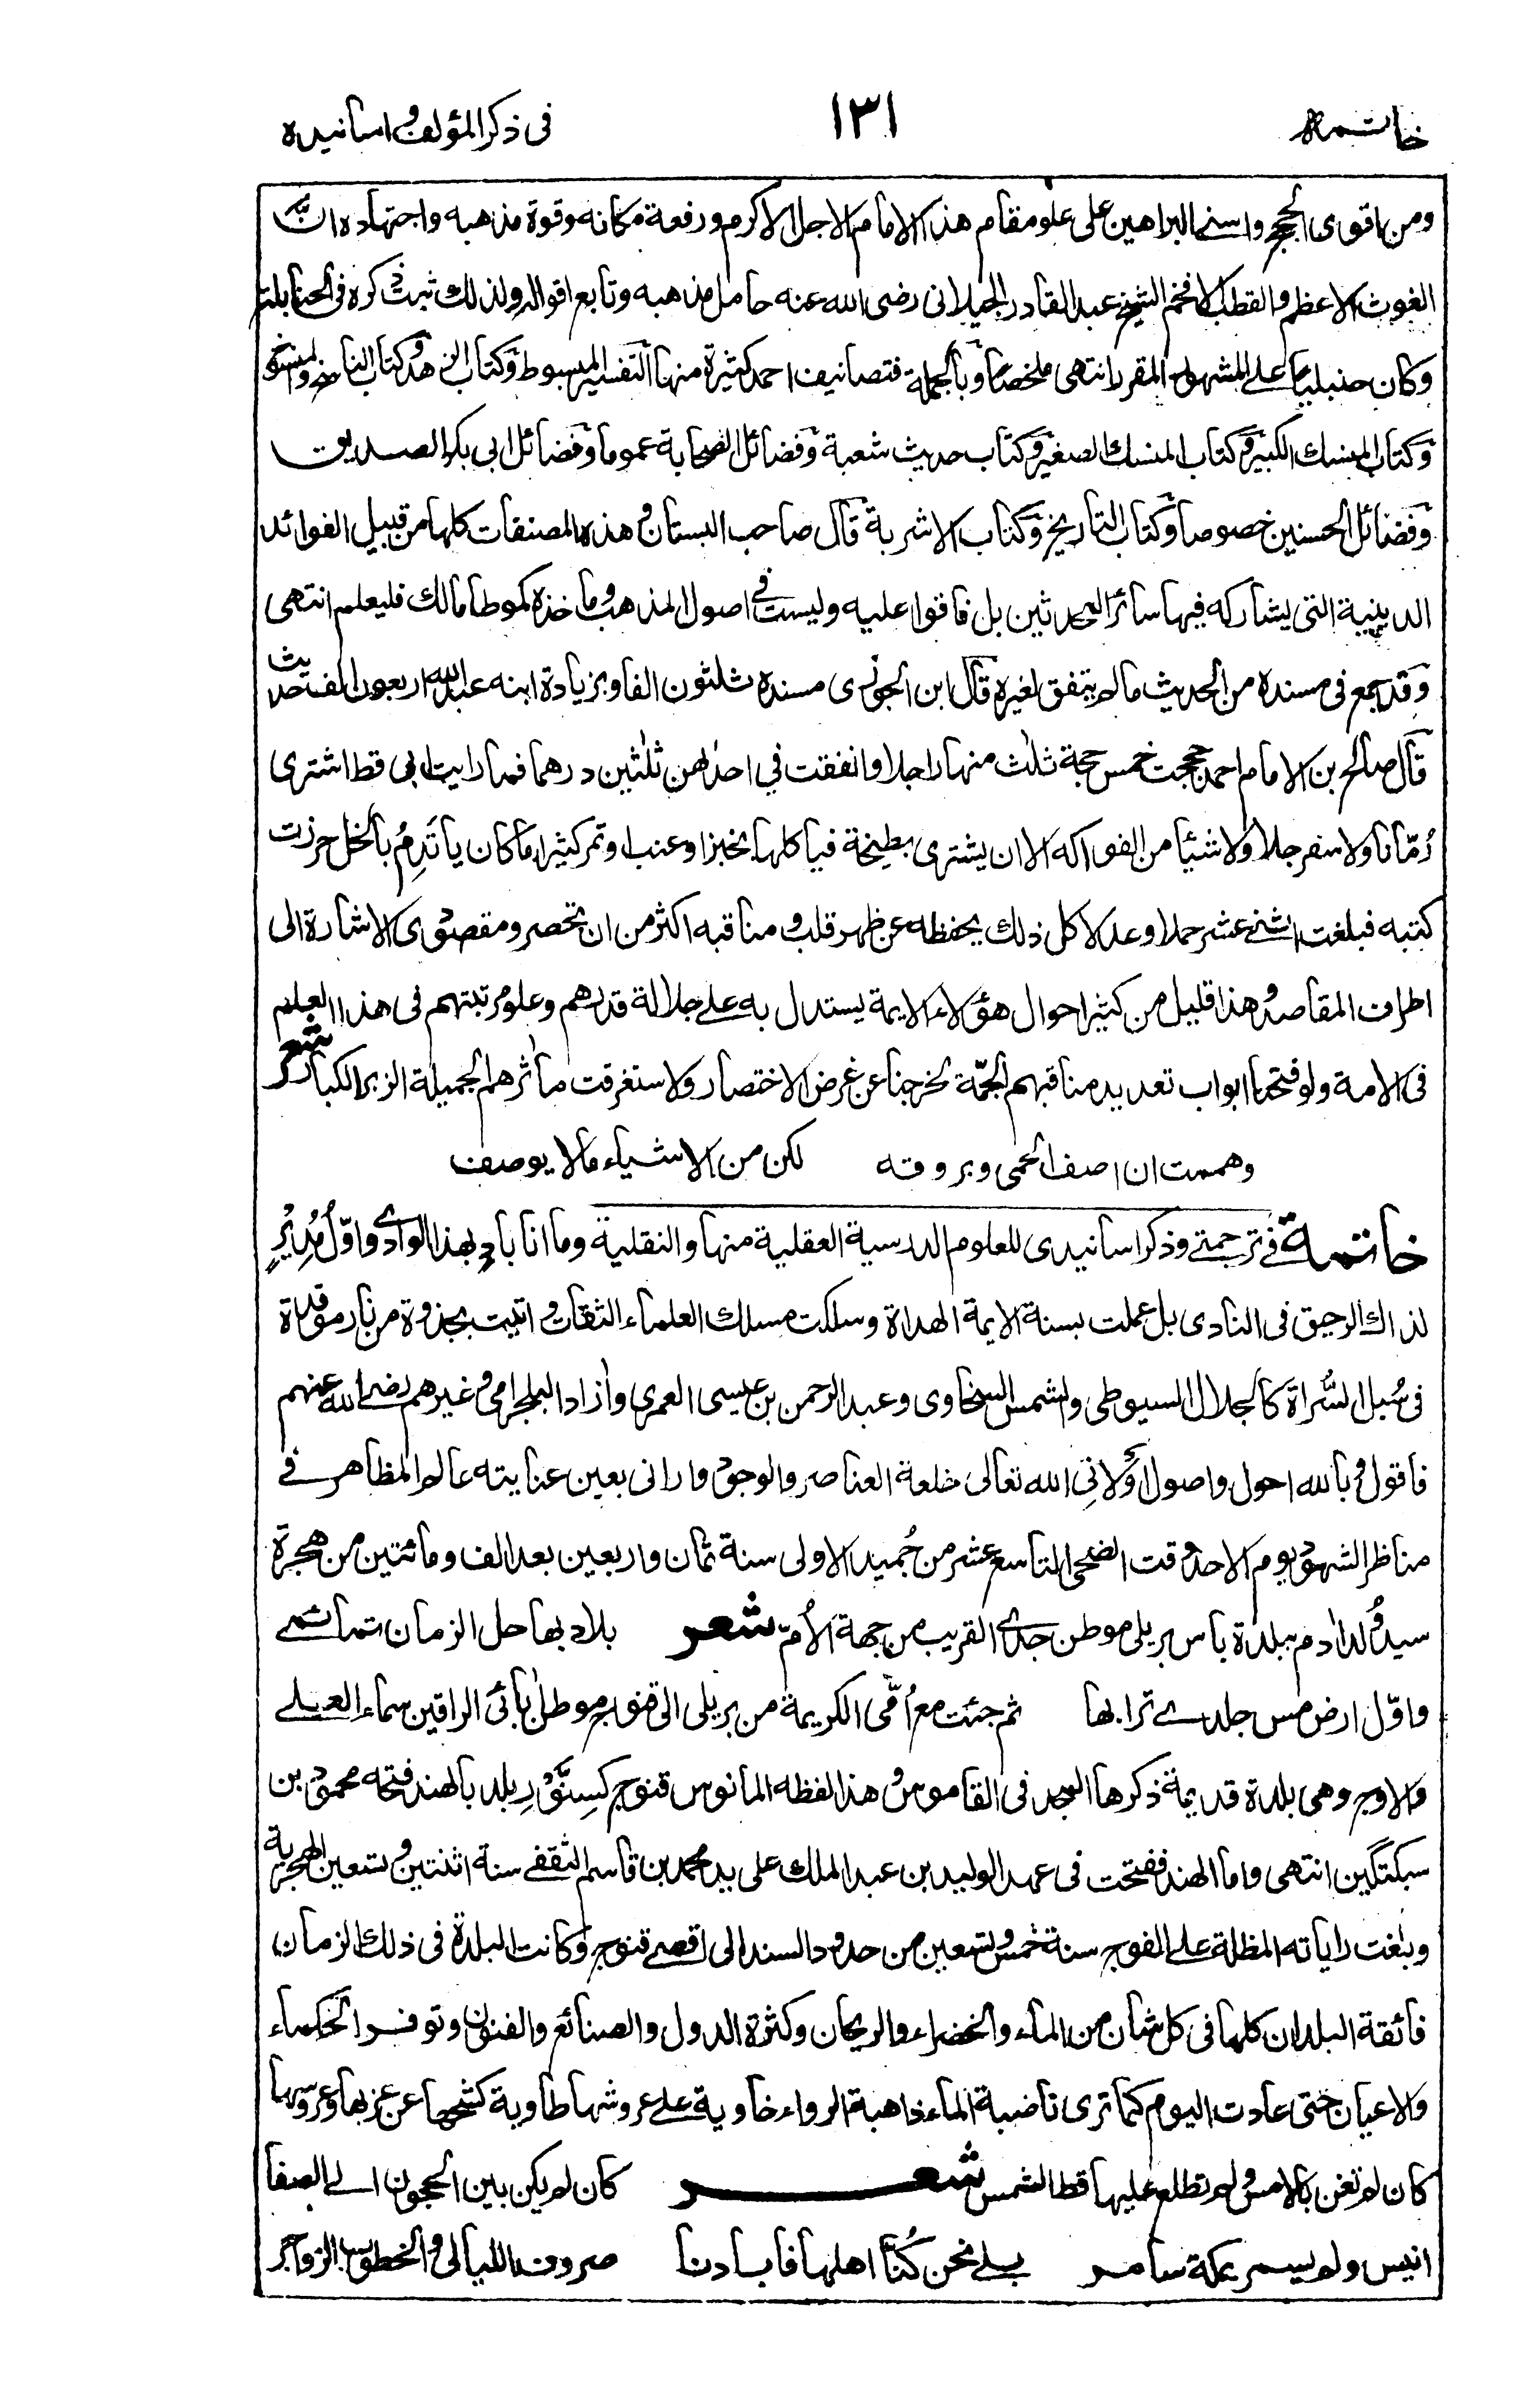 خاتمه
١٣١
فى ذكر المؤلف و اسانيده
ومن اقوى الحجج واسنى البراهين على علو مقام هذا الامام الاجل الاكرم ورفعة مكانه وقوة مذهبه واجتهاده ان
الغوث الاعظم والقطب الافخم الشيخ عبد القادر الجيلانى رضى الله عنه حامل مذهبه وتابع اقواله ولذلك ثبت ذكره فى الحنابلة
وكان حنبليا على المشهور المقرر انتهى ملخصا وبالجملة فتصانيف احمد كثيرة منها التفسير المبسوط وكتاب الزهد وكتاب الناسخ والمنسوخ
وكتاب المنسك الكبير وكتاب المنسك الصغير وكتاب حديث شعبة وفضائل الصحابة عموما وفضائل ابى بكر الصديق
وفضائل الحسنين خصوصا وكتاب التاريخ وكتاب الاشربة قال صاحب البستان وهذه المصنفات كلها من قبيل الفوائد
الدينية التى يشاركه فيها سائر المحدثين بل فاقوا عليه وليست فى اصول المذهب وماخذه كموطا مالك فليعلم انتهى
وقد جمع فى مسنده من الحديث مالم يتفق لغيره قال ابن الجوزى مسنده ثلثون الفا وبزيادة ابنه عبد الله اربعون الف حديث
قال صالح بن الامام احمد حججت خمس حجة ثلاث منها راجلا وانفقت في احدٰهن ثلٰثين درهما فما رايت ابى قط اشترى
رُمّانا ولا سفرجلا ولا شيئا من الفواكه الا ان يشترى بطيخة فياكلها بخبز او عنب او تمر كثيرا ما كان ياتَدِمُ بالخل حرزت
كتبه فبلغت اثنى عشر حملا وعدلا كل ذلك يحفظه عن ظهر قلب ومناقبه اكثر من ان تحصر ومقصودى الاشارة الى
اطراف المقاصد وهذا قليل من كثير احوال هؤلاء الايمة يستدل به على جلالة قدرهم وعلو مرتبتهم فى هذا العلم
فى الامة ولو فتحنا ابواب تعديد مناقبهم الجمّة لخرجنا عن غرض الاختصار ولاستغرقت مآثرهم الجميلة الزبر الكبار شعر
وهممت ان اصف الحمى وبروقه لكن من الاشياء مالا يوصف
خاتمة فى ترجمتى وذكر اسانيدى للعلوم الدرسية العقلية منها والنقلية وما انا بادٍ بهذا الوادى واوّل مُدِيْرٍ
لذاك الرحيق فى النادى بل عملت بسنة الايمة الهداة وسلكت مسلك العلماء الثقات و اتيت بجذوة من نار موقدة
فى سُبل السُّراة كالجلال السيوطى والشمس السخاوى وعبد الرحمن بن عيسى العمري وآزاد البلجرامى وغيرهم رضى الله عنهم
فاقول وبالله احول واصول اَوْلانِى الله تعالى خلعة العناصر والوجود وارانى بعين عنايته عالم المظاهر فى
مناظر الشهود يوم الاحد وقت الضحى التاسع عشر من جُميد الاولى سنة ثمان واربعين بعد الف ومائتين من هجرة
سيد وُلد ادم ببلدة باس بريلى موطن جدى القريب من جهة الاُمّ شعر بلاد بها حل الزمان تمائمى
واوّل ارض مس جلدى ترابها ثم جئت مع اُمّى الكريمة من بريلى الى قنوج موطن اٰبائى الراقين سماء العلى
والاوج وهى بلدة قديمة ذكرها المجد فى القاموس وهذا لفظه المانوس قنوج كسِنَّوْرِ بلد بالهند فتحه محمود بن
سبكتگين انتهى واما الهند ففتحت فى عهد الوليد بن عبد الملك على يد محمد بن قاسم الثقفى سنة اثنتين وتسعين الهجرية
وبلغت راياته المظلة على الفوج سنة خمس وتسعين من حدود السند الى اقصى قنوج وكانت البلدة فى ذلك الزمان
فائقة البلدان كلها فى كل شان من الماء والخضراء والريحان وكثرة الدول والصنائع والفنون وتوفر الحكماء
والاعيان حتى عادت اليوم كما ترى ناضبة الماء ذاهبة الرواء خاوية على عروشها طاوية كشحها عن عزبها وعروسها
كان لم تغن بالامس ولم تطلع عليها قط الشمس شعر كان لم يكن بين الحجون الى الصفا
انيس ولم يسمر بمكة سامر بلى نحن كُنّا اهلها فابادنا صروف الليالى والخطوب الزواجر